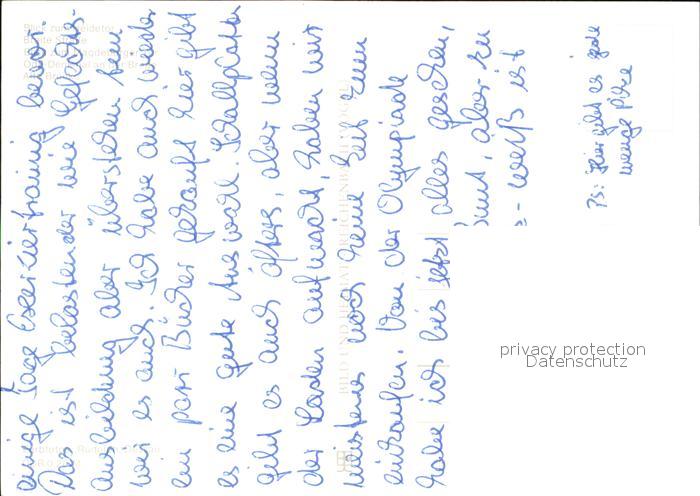 einige Tage Exerziertraining bevor.
Das ist belastender wie Gefechts-
ausbildung aber überstehen tun
wir es auch. Ich habe auch wieder
ein paar Bücher gekauft hier gibt
es eine gute Auswahl. Schallplatten
gibt es auch öfters, aber wenn
der Laden aufmacht, haben wir
meistens noch keine Zeit zum
einkaufen. Von der Olympiade
habe ich bis jetzt alles gesehen,
aber zu
weiß ist
PS: Hier gibt es jede
menge Pilze
privacy protection
Datenschutz
BILD UND HEIMAT REICHENBACH